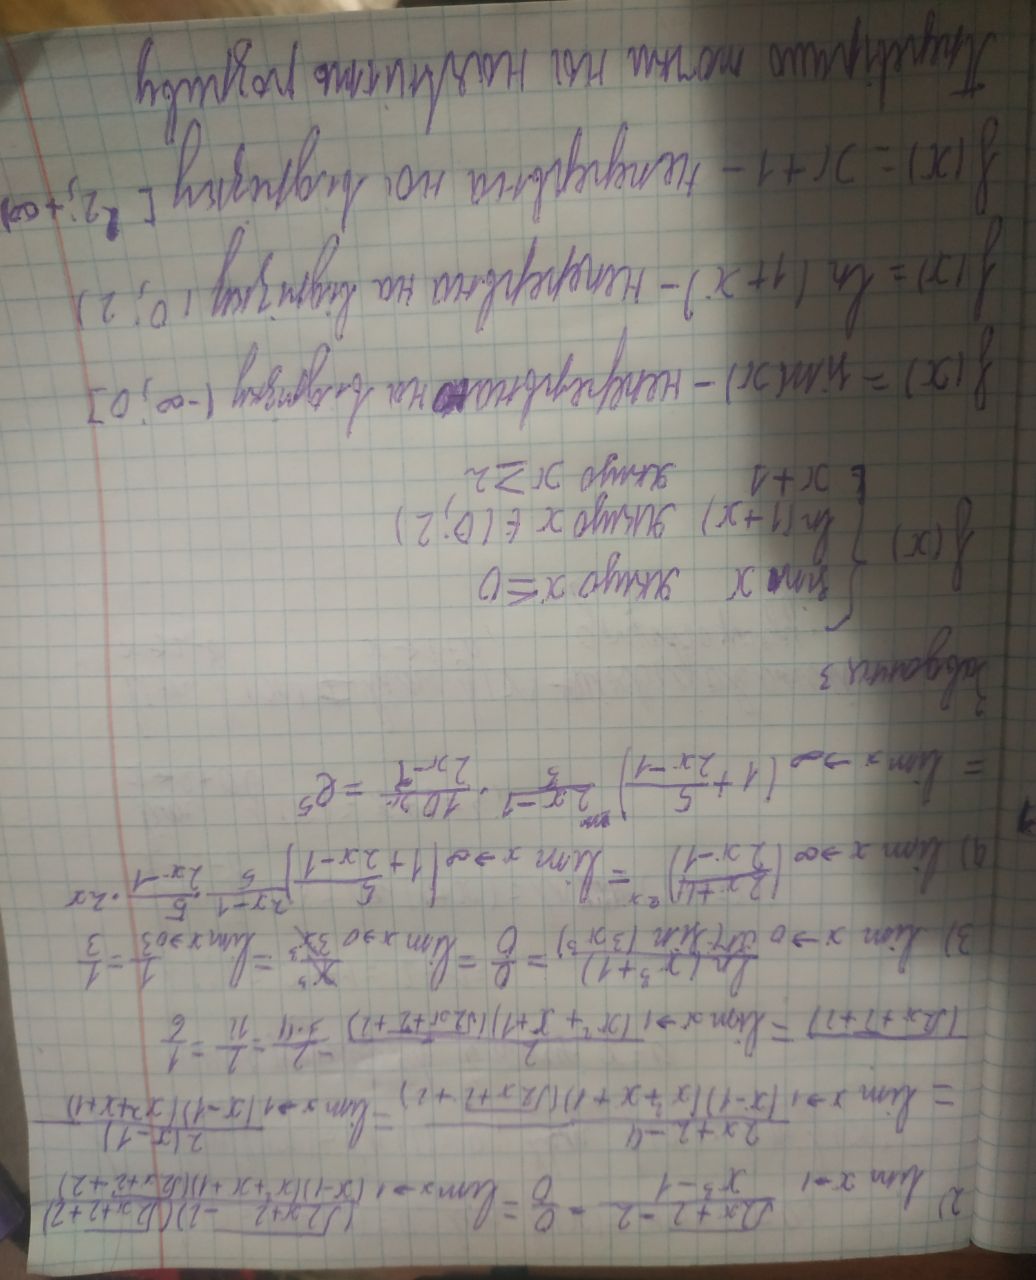 2) lim x→1 (√2x+2 − 2)/(x³−1) = 0/0 = lim x→1 (√2x+2 − 2)(√2x+2+2)/(x−1)(x²+x+1)(√2x+2+2)
= lim x→1 2x+2−4/(x−1)(x²+x+1)(√2x+2+2) = lim x→1 2(x−1)/(x−1)(x²+x+1)
(√2x+2+2) = lim x→1 2/(x²+x+1)(√2x+2+2) = 2/3·4 = 2/12 = 1/6
3) lim x→0 ln(x³+1)/sin(3x³) = 0/0 = lim x→0 x³/3x³ = lim x→0 1/3 = 1/3
4) lim x→∞ (2x+4/2x−1)^2x = lim x→∞ (1+5/2x−1)^2x−1/5·5/2x−1·2x
= lim x→∞ (1+5/2x−1)^2x−1/5·10x/2x−1 = e⁵
Завдання 3
f(x) { sin x якщо x ≤ 0
ln(1+x) якщо x ∈ (0; 2)
x+1 якщо x ≥ 2
f(x) = sin(x) – неперервна на відрізку (-∞; 0]
f(x) = ln(1+x) – неперервна на відрізку (0; 2)
f(x) = x+1 – неперервна на відрізку [2; +∞)
Перевірмо точки на наявність розриву